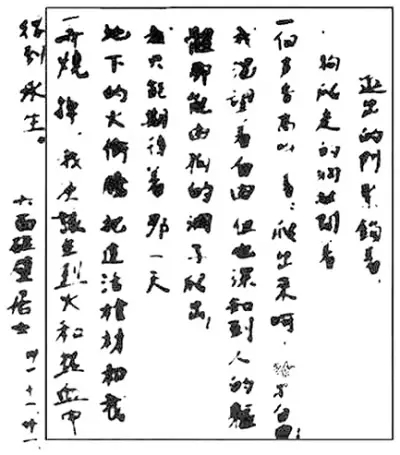 進出的門緊鎖着,
狗爬走的洞敞開着
一個声音高叫着:爬出来呵,給尔自由!
我渴望着自由 但也深知到人的軀
體那能由狗的洞子爬出!
我只能期待着 那一天
地下的火衝騰 把這活棺材和我
一齊燒掉,我应該在烈火和熱血中
得到永生。
六面碰壁居士 卅一·十一·廿一